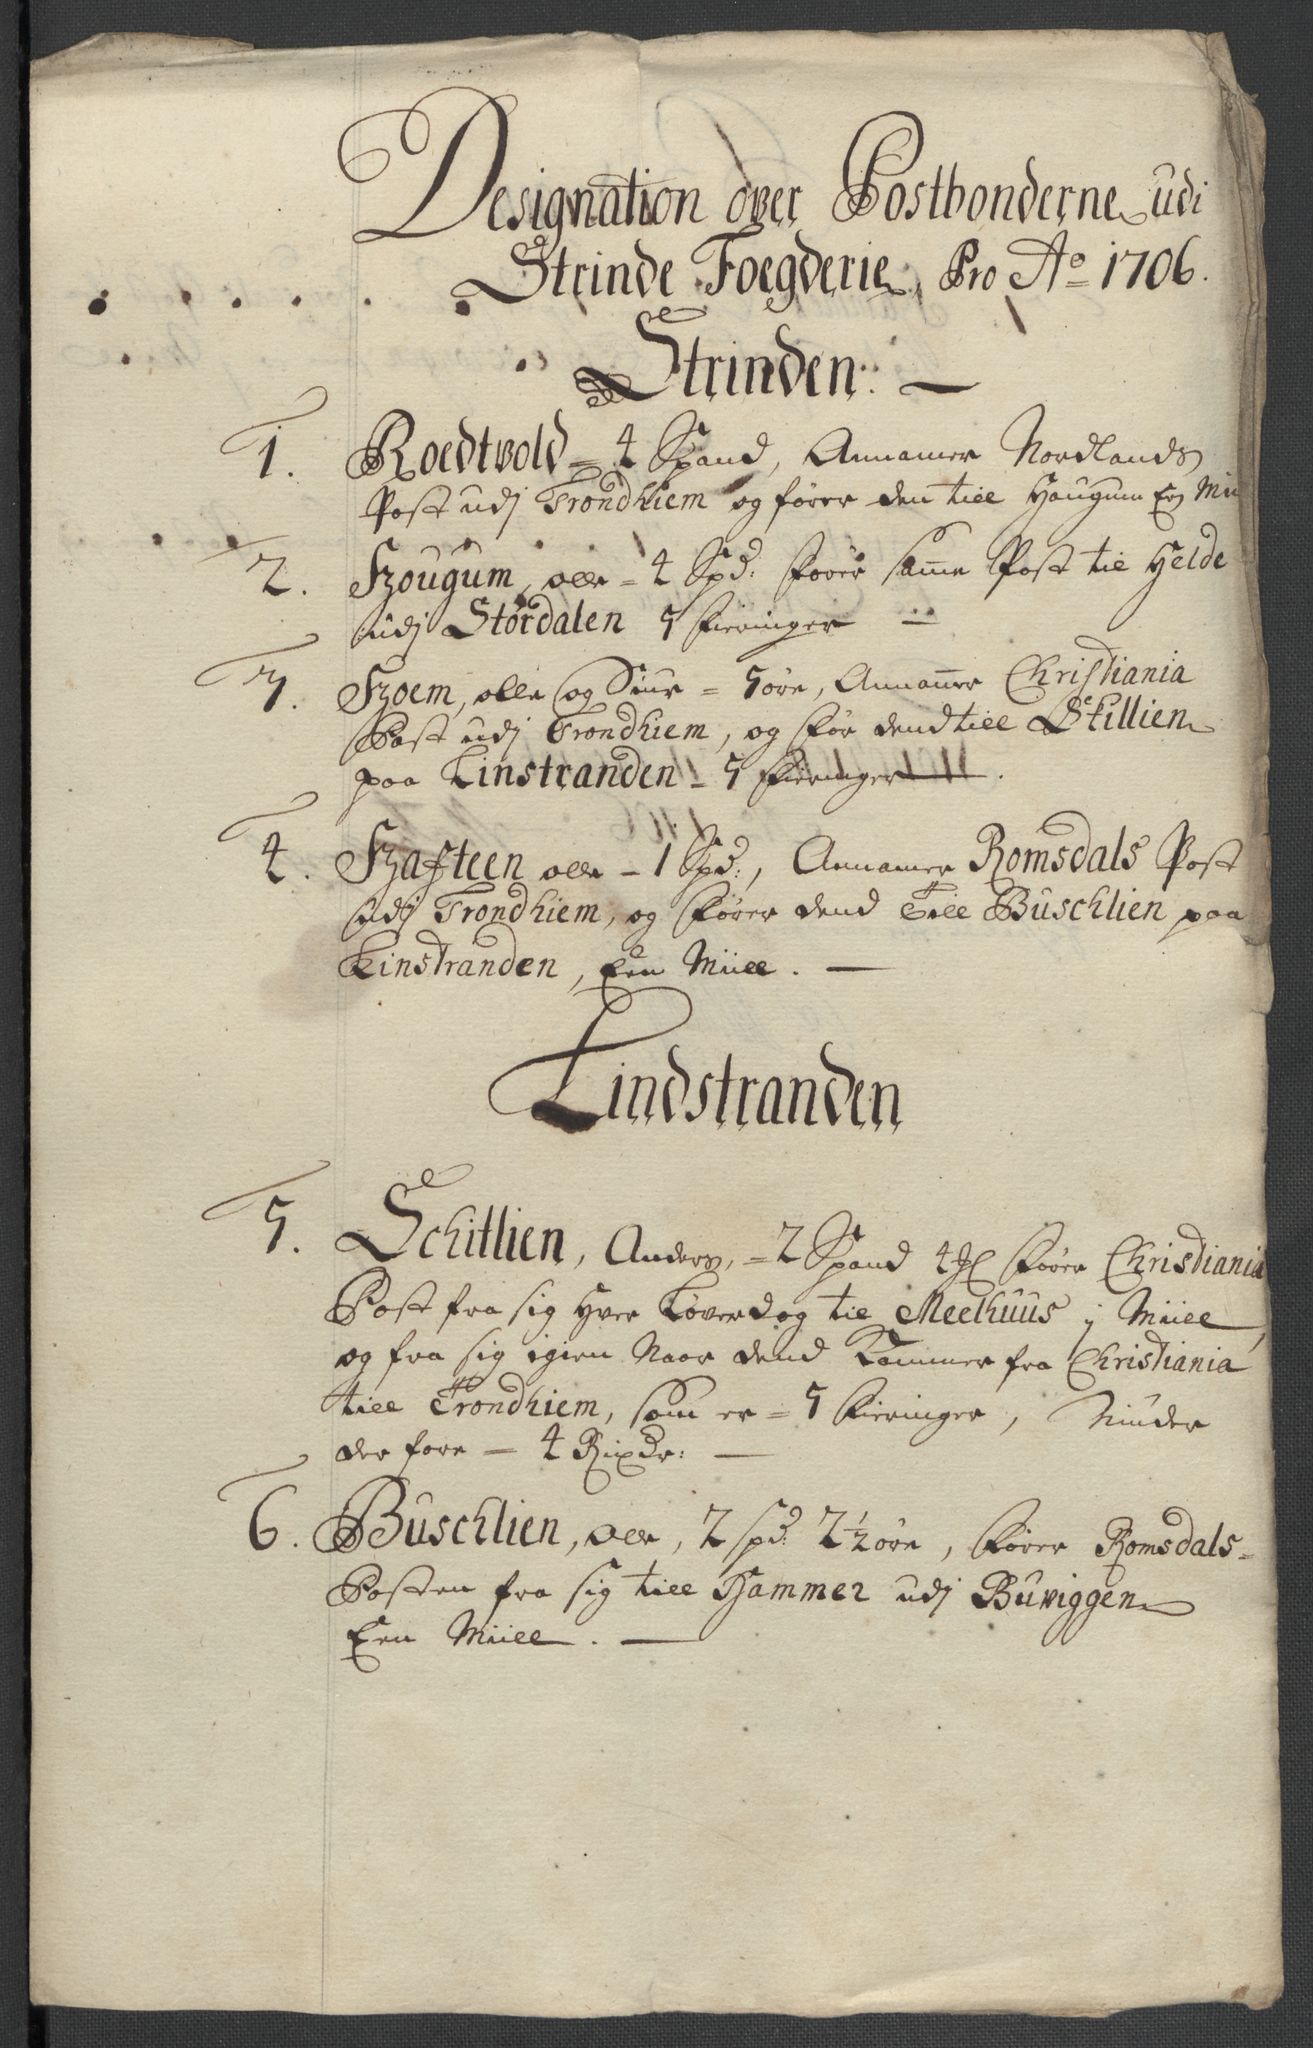 Designation over Postbonderne udi
Strinde Foegderie, Pro Ao 1706.
Strinden:
1. Roedtvold = 4 Spand, Annamer Nordlands
Post udj Trondhiem og fører den till Haugum En Mii
2. Hougum, olle = 4 Spd: Fører samme Post til Helde
udj Størdalen 5 Fieringer
3. Hoem, olle og Siur = 5 øre, Annamer Christiania
Post udj Trondhiem, og før dend till Skillien
paa Leinstranden = 5 Fieringer.
4. Hafsteen olle = 1 Spd:, Annamer Romsdals Post
udj Trondhiem, og fører dend Till Buschlien paa
Leinstranden, Een Miill.
Leindstranden
5. Schitlien, Anders, = 2 Spand 4 Fører Christiania
Post fra sig Hver Løverdag til Meelhuus j Miill,
og fra sig igien Naar dend Kammer fra Christiania
till Trondhiem, som er = 5 Fieringer, Niuder
der fore = 4 Rixdr:
6. Buschlien, olle, 2 spd: 2½ øre, Fører Romsdals-
Posten fra sig till Hammer udj Buviggen
Een Miill.